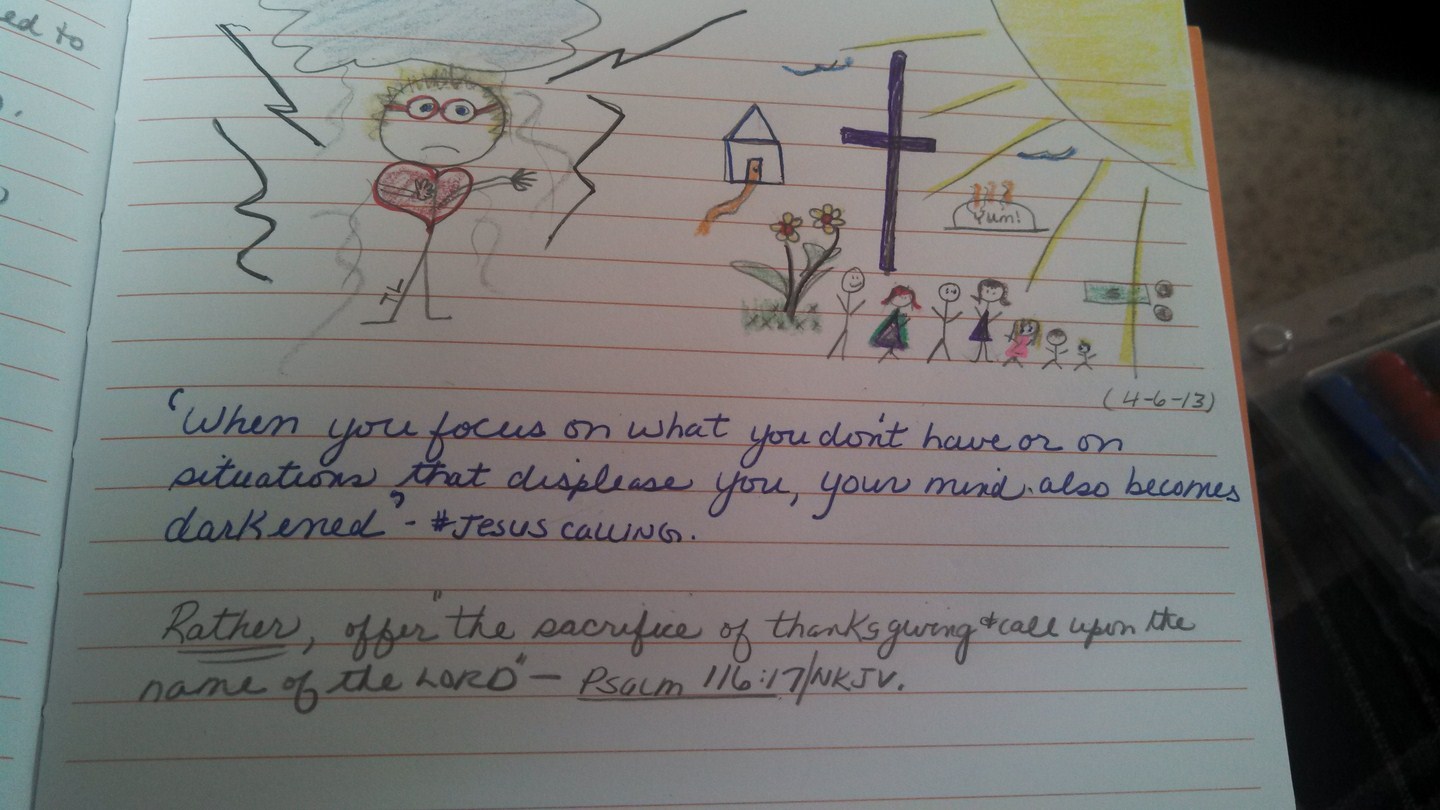 ed to
Yum!
(4-6-13)
"When you focus on what you don't have or on
situations that displease you, your mind also becomes
darkened" - #JESUS CALLING.
Rather, offer "the sacrifice of thanksgiving & call upon the
name of the LORD" — Psalm 116:17/NKJV.